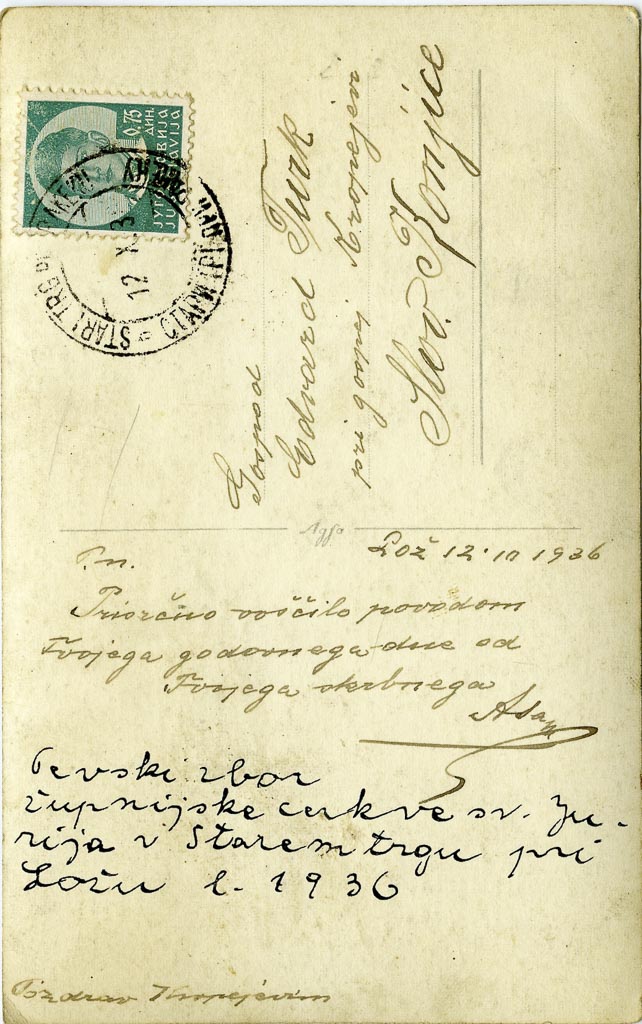 0.75
ДИН.
STARI TRG
12 X 3
Gospod
Edvard Turk
pri gospej Kropejevi
Slov. Konjice
Agfa
Lož 12.10 1936
P.n.
Prisrčno voščilo povodom
Tvojega godovnega dne od
Tvojega skrbnega
Pevski zbor
župnijske cerkve sv. Ju-
rija v Starem trgu pri
Ložu l. 1936
Pozdrav Kropejevim